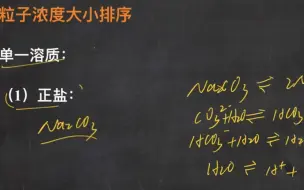 粒子浓度大小排序
单一溶质：
（1）正盐：
Na2CO3
Na2CO3 ⇌ 2
CO3^2- + H2O ⇌ HCO3
HCO3^- + H2O ⇌ H2
H2O ⇌ H+ +